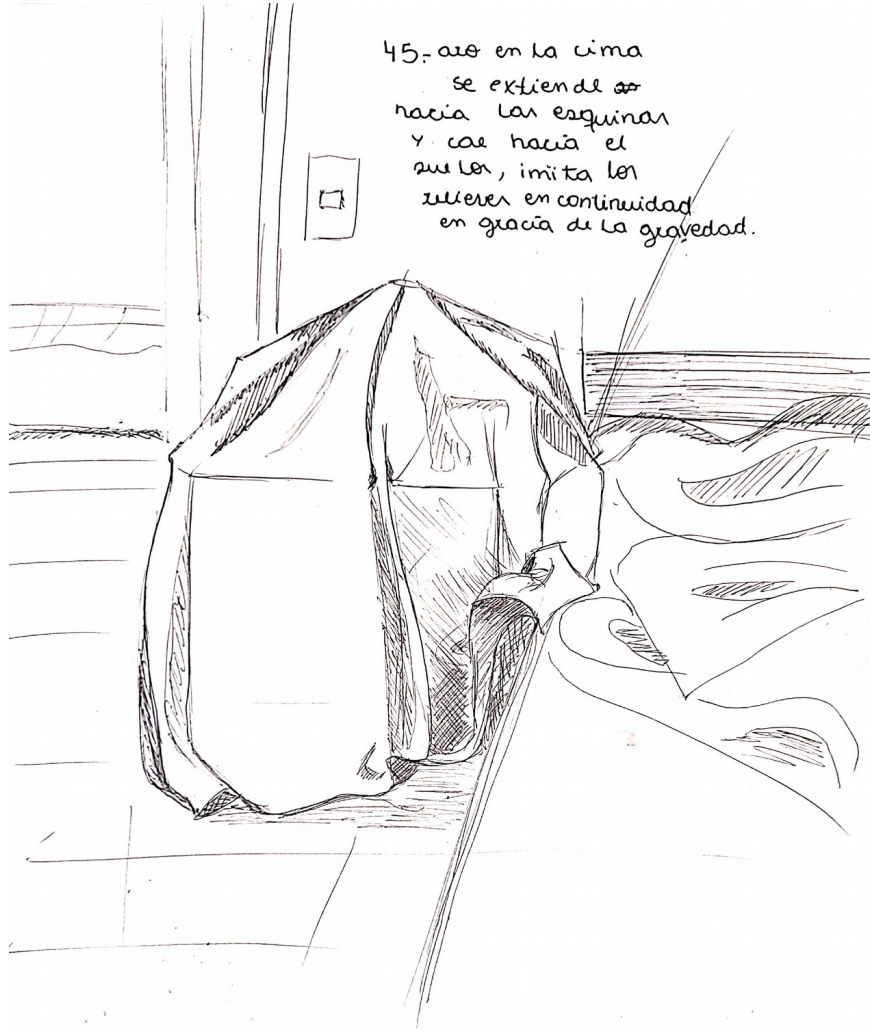 45.- aro en la cima
se extiende
hacia las esquinas
y cae hacia el
suelos, imita los
relieves en continuidad
en gracia de la gravedad.